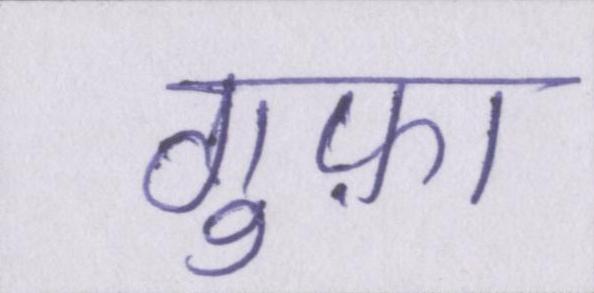 गुफ़ा